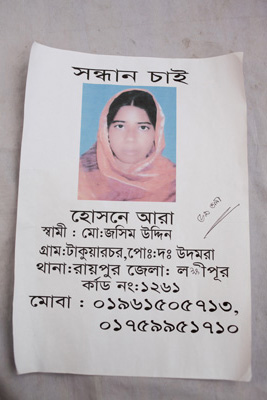 সন্ধান চাই
হোসনে আরা
স্বামী : মো:জসিম উদ্দিন
গ্রাম:টাকুয়ারচর,পোঃ:দঃ উদমরা
থানা:রায়পুর জেলা: লক্ষীপূর
কার্ড নং:১২৬১
মোবা : ০১৯৬১৫০৫৭১৩,
০১৭৫৯৯৫১৭১০